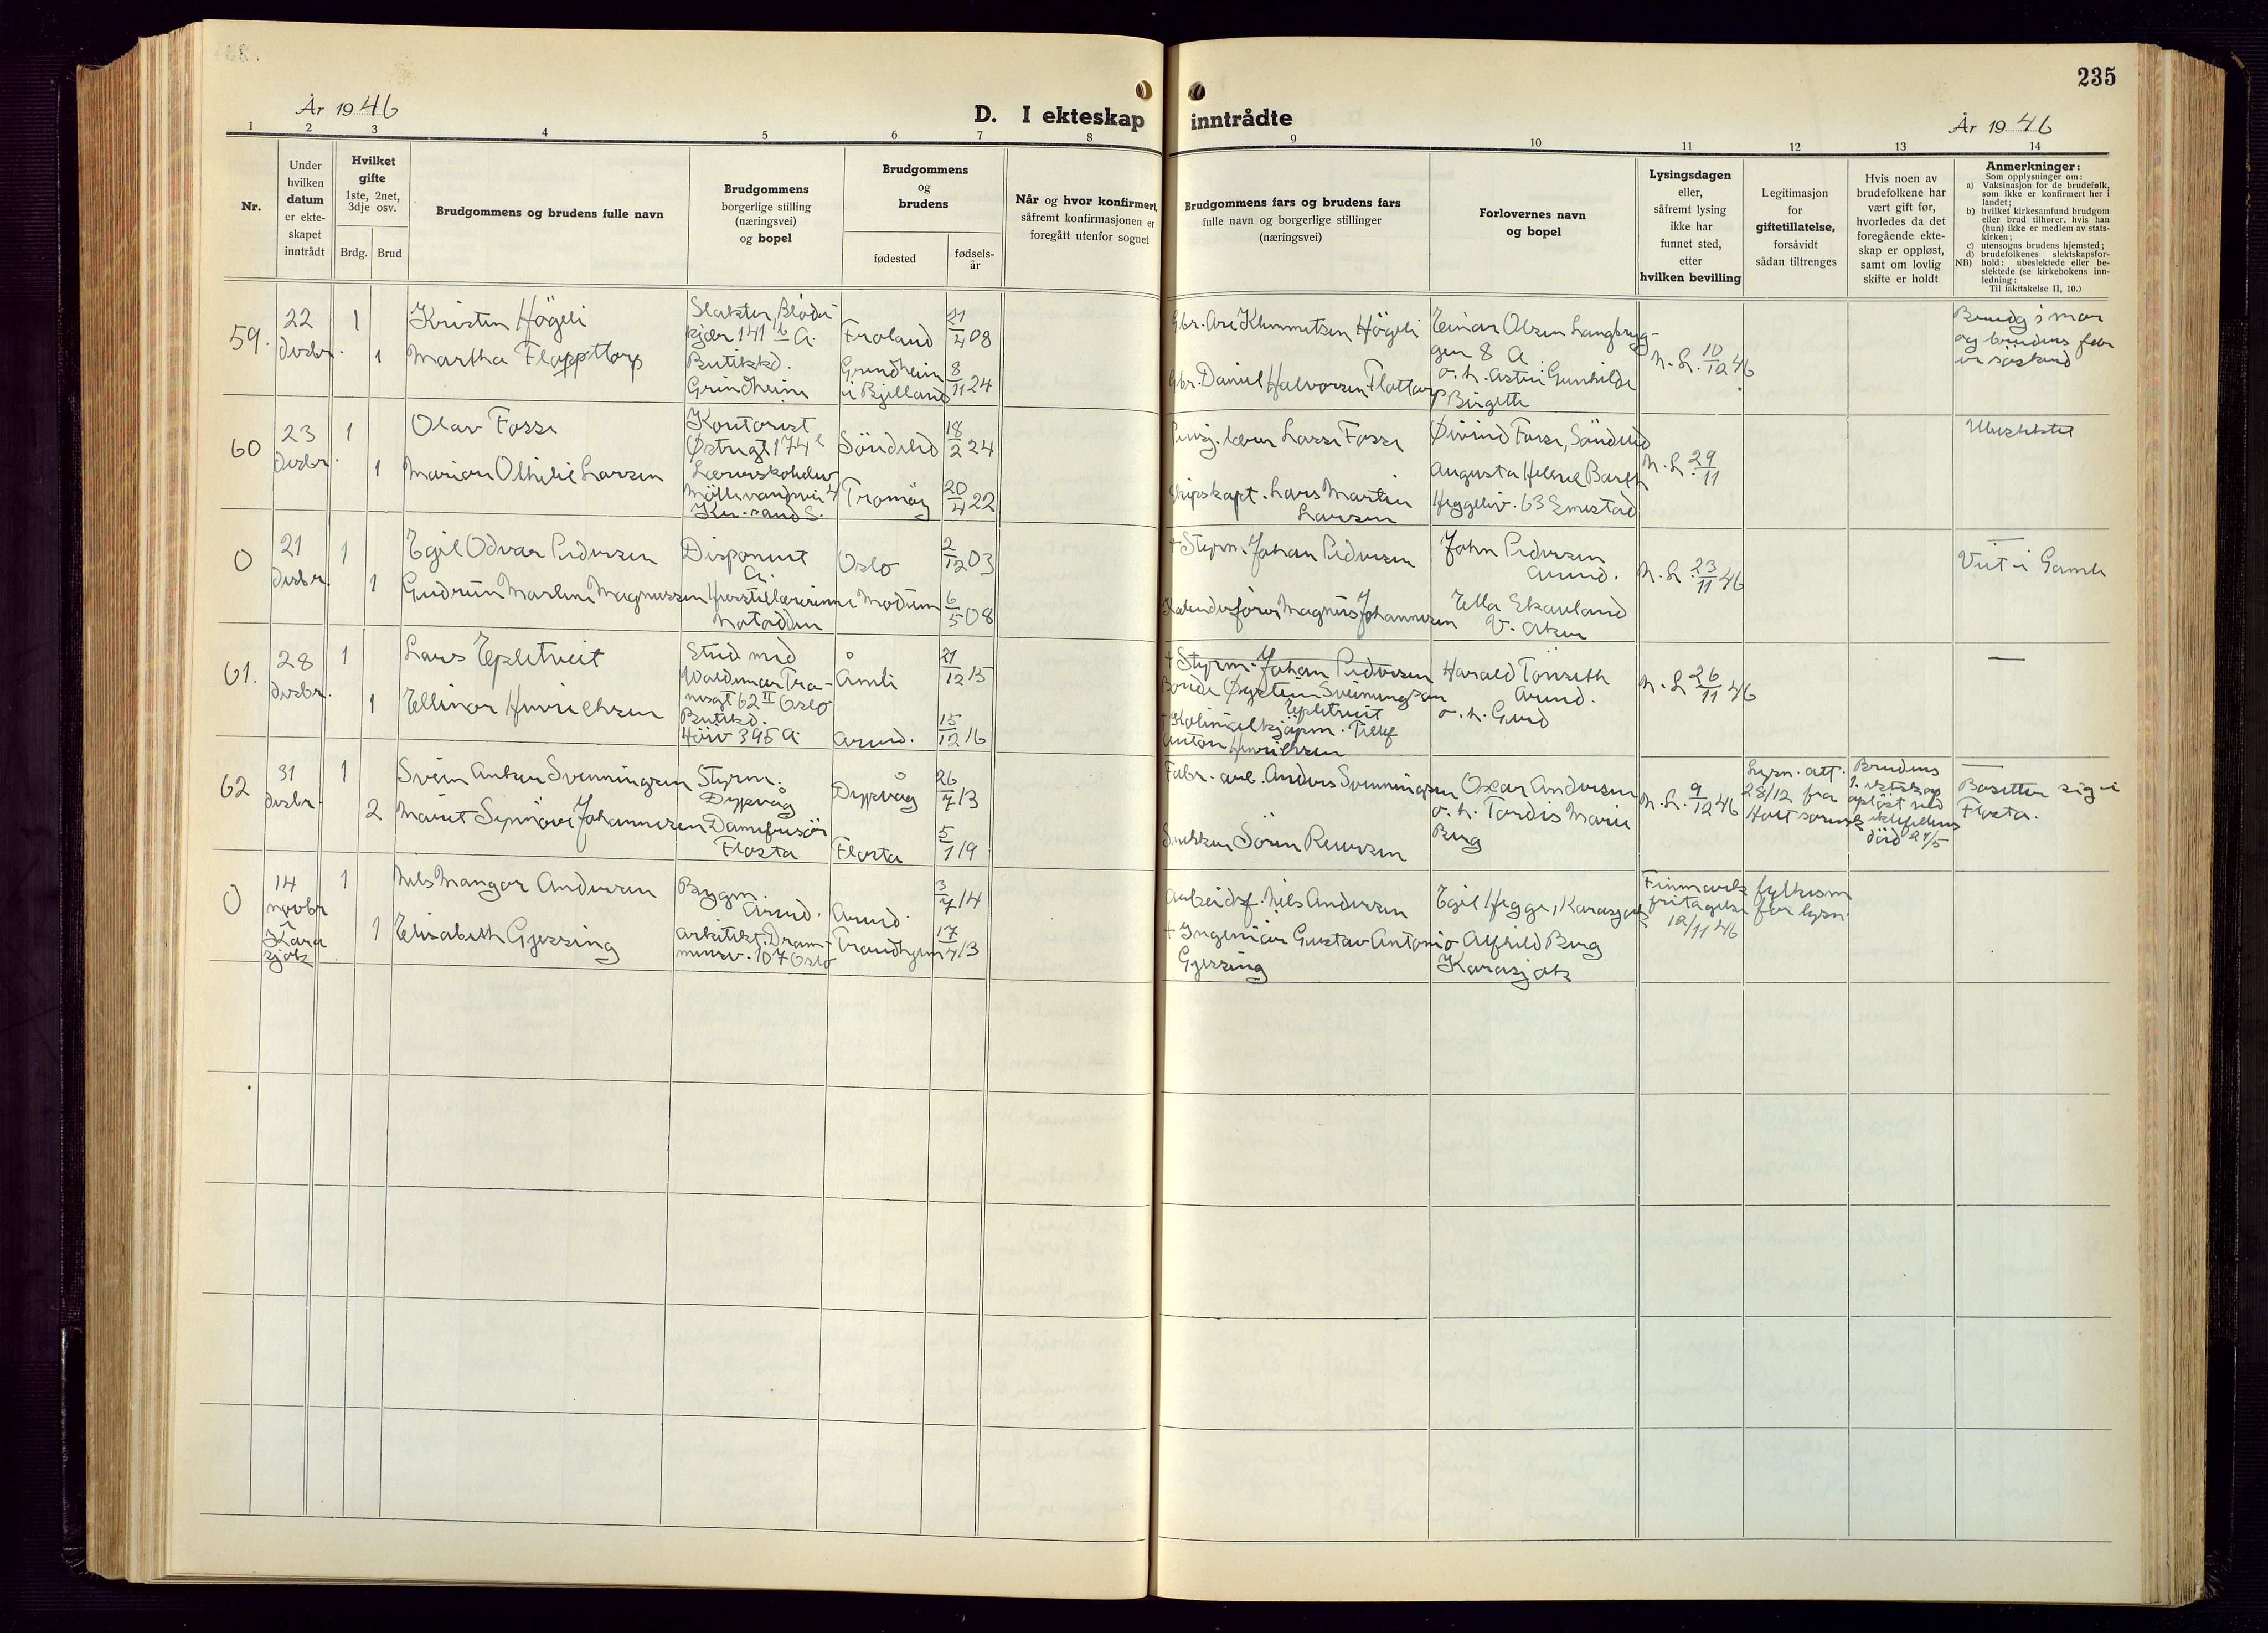 235
År 1946
D. I ekteskap inntrådte
År 1946
1 2 3 4 5 6 7 8 9 10 11 12 13 14
Nr.
Under
hvilken
datum
er ekte-
skapet
inntrådt
Hvilket
gifte
1ste, 2net,
3dje osv.
Brdg. Brud
Brudgommens og brudens fulle navn
Brudgommens
borgerlige stilling
(næringsvei)
og bopel
Brudgommens
og
brudens
fødested
fødsels-
år
Når og hvor konfirmert,
såfremt konfirmasjonen er
foregått utenfor sognet
Brudgommens fars og brudens fars
fulle navn og borgerlige stillinger
(næringsvei)
Forlovernes navn
og bopel
Lysingsdagen
eller,
såfremt lysing
ikke har
funnet sted,
etter
hvilken bevilling
Legitimasjon
for
giftetillatelse,
forsåvidt
sådan tiltrenges
Hvis noen av
brudefolkene har
vært gift før,
hvorledes da det
foregående ekte-
skap er oppløst,
samt om lovlig
skifte er holdt
Anmerkninger:
Som opplysninger om:
a) Vaksinasjon for de brudefolk,
som ikke er konfirmert her i
landet;
b) hvilket kirkesamfund brudgom
eller brud tilhører, hvis han
(hun) ikke er medlem av stats-
kirken;
c) utensogns brudens hjemsted;
d) brudefolkenes slektskapsfor-
NB) hold: ubeslektede eller be-
slektede (se kirkebokens inn-
ledning:
Til iakttakelse II, 10.)
59.
22
desbr.
1
1
Kristen Högeli
Martha Flappttorp
Slakter, Blöde
kjær 141 b A.
Butikkd.
Grindheim
Froland
Grundheim
i Bjelland
31/4 08
8/11 24
Gbr. Are Klemmetsen Högeli
Gbr. Daniel Halvorsen Flottorp
Einar Olsen Langbryg-
gen 8 A
o. h. Astri Gunhilde
Birgitte
M. L. 10/12 46
Brudg's mor
og brudens far
er söskend
60
23
desbr.
1
1
Olav Fosse
Marion Othilie Larsen
Kontorist
Østregt 174
Lærerskoleelev
Möllevandsvei 4
Kr.sand S.
Söndeled
Tromöy
18/2 24
20/4 22
Pensj. lærer Lasse Fosse
Skipskapt. Lars Martin
Larsen
Øivind Fosse, Söndeled
Augusta Helene Barth
Heggeliv. 63 Smestad
M. L. 29/11
Ubeslektet
0
21
desbr.
1
1
Egil Odvar Pedersen
Gudrun Marlene Magnussen
Disponent
A.
Notodden
Oslo
Modum
2/12 03
6/5 08
+ Styrm. Johan Pedersen
Magnus Johannessen
John Pedersen
Arend.
Ella Skauland
V. Aker
M. L. 23/11 46
Viet i Gamle
61.
28
desbr.
1
1
Lars Epletveit
Ellinor Henrichsen
Stud med
Waldemar Tra-
nesgt 62 II Oslo
Butikkd.
Höiv 395 A.
Åmli
Arend.
21/12 15
15/12 16
+ Styrm. Johan Pedersen
Bonde Øystein Sveinungson
Epletveit
Kolonialkjøpm. Tellef
Anton Henrichsen
Harald Tönseth
Arend.
o. h. Gerd
M. L. 26/11 46
—
62
31
desbr.
1
2
Svein Anker Svenningsen
Marit Synnöve Johannessen
Styrm.
Dypvåg
Damefrisör
Flosta
Dypvåg
Flosta
26/7 13
5/1 19
Fabr. arb. Anders Svenningsen
Snekker Sören Reiersen
Oscar Andersen
o. h. Tordis Marie
Berg
M. L. 9/12 46
Lysn. att.
28/12 fra
Holt sorensk
Brudens
1. ektskap
opløst ved
ektefellens
död 27/5
—
Bosetter sig i
Flosta.
0
14
novbr
i
Kara
sjok
1
1
Nils Mangor Andersen
Elisabeth Gjessing
Bygm.
Arend.
Arkitekt. Dram-
mensv. 107 Oslo
Arend.
Trondhjem
3/7 14
17/4 13
Arbeidsf. Nils Andersen
+ Ingeniör Gustav Antonio
Gjessing
Egil Hegge, Karasjok
Alfhild Berg
Karasjok
Finmark fylkesm
fritagelse for lysn.
12/11 46